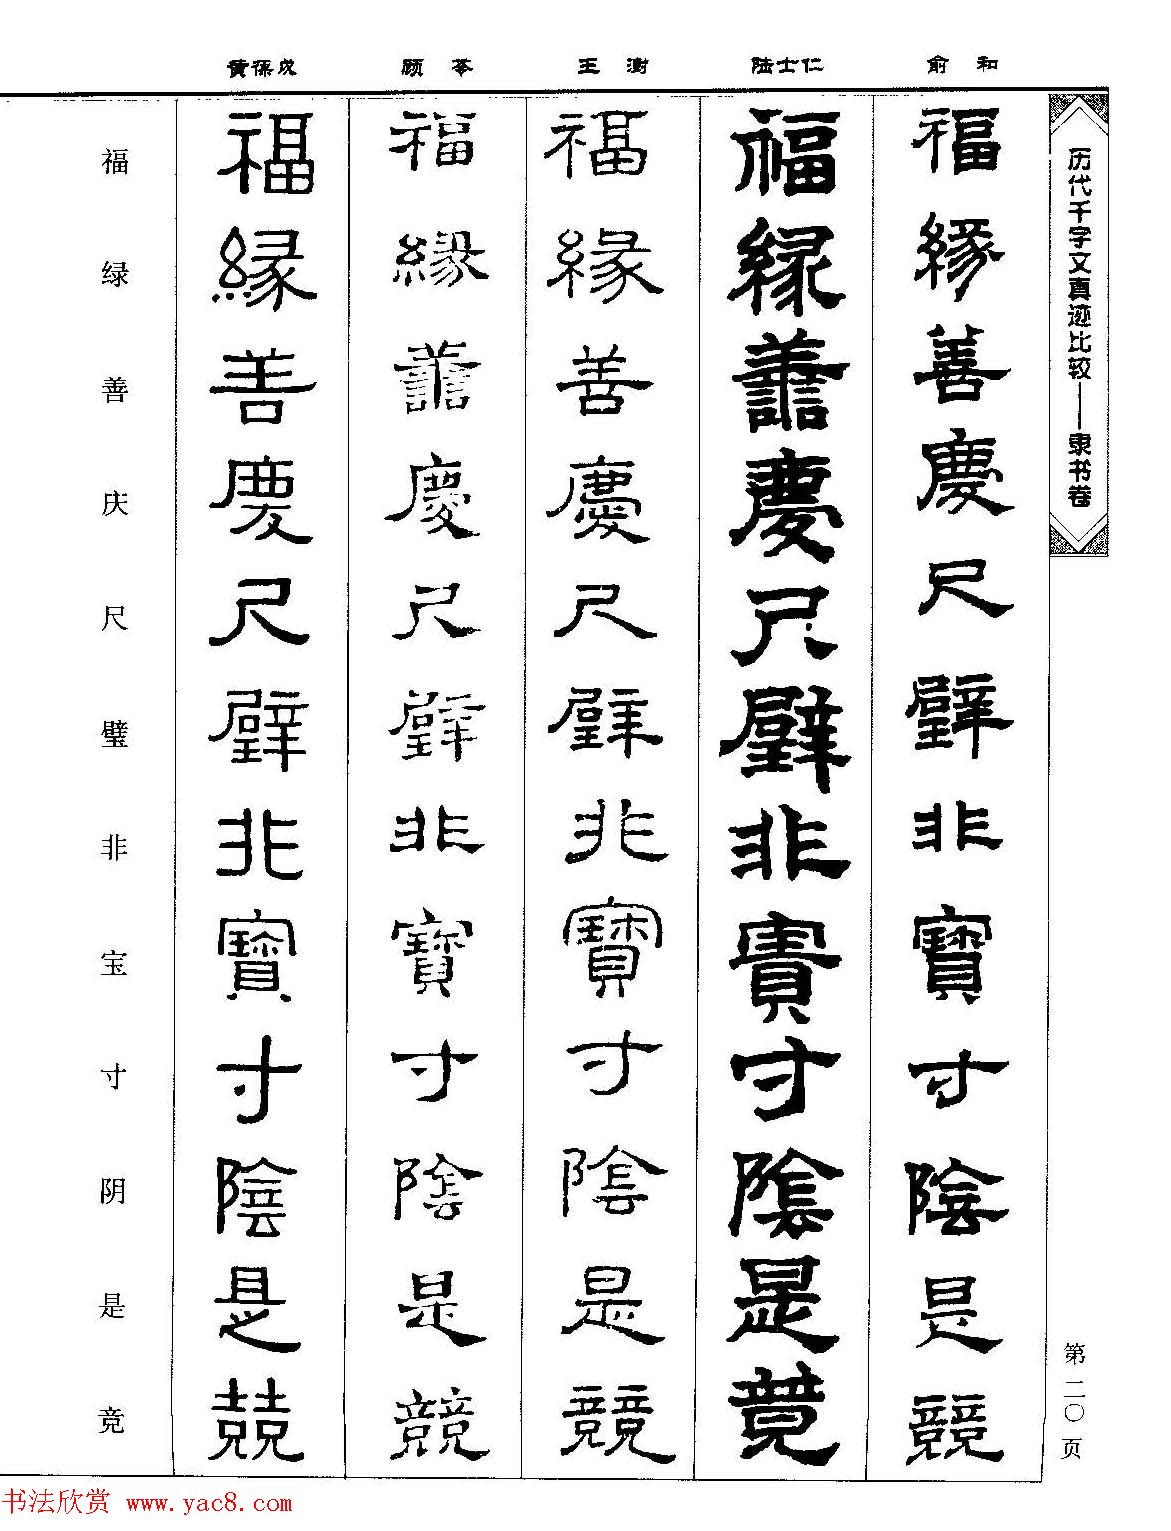 历代千字文真迹比较——隶书卷
第二〇页
俞和
福緣善慶尺璧非寶寸陰是競
陆士仁
福緣譱慶尺璧非寳寸陰是競
王澍
福緣善慶尺璧非寶寸陰是競
顾苓
福緣譱慶尺璧非寶寸陰是競
黄葆戉
福緣善慶尺璧非寶寸陰是競
福绿善庆尺璧非宝寸阴是竞
书法欣赏 www.yac8.com